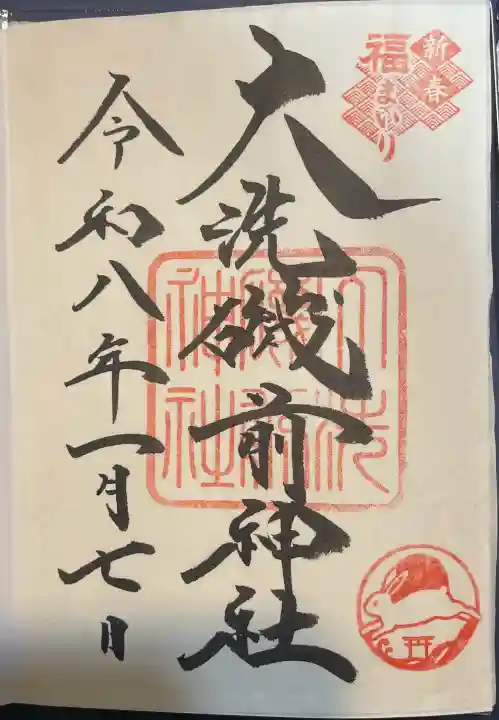 新春
福まいり
大洗磯前神社
大洗
磯前
神社
令和八年一月七日